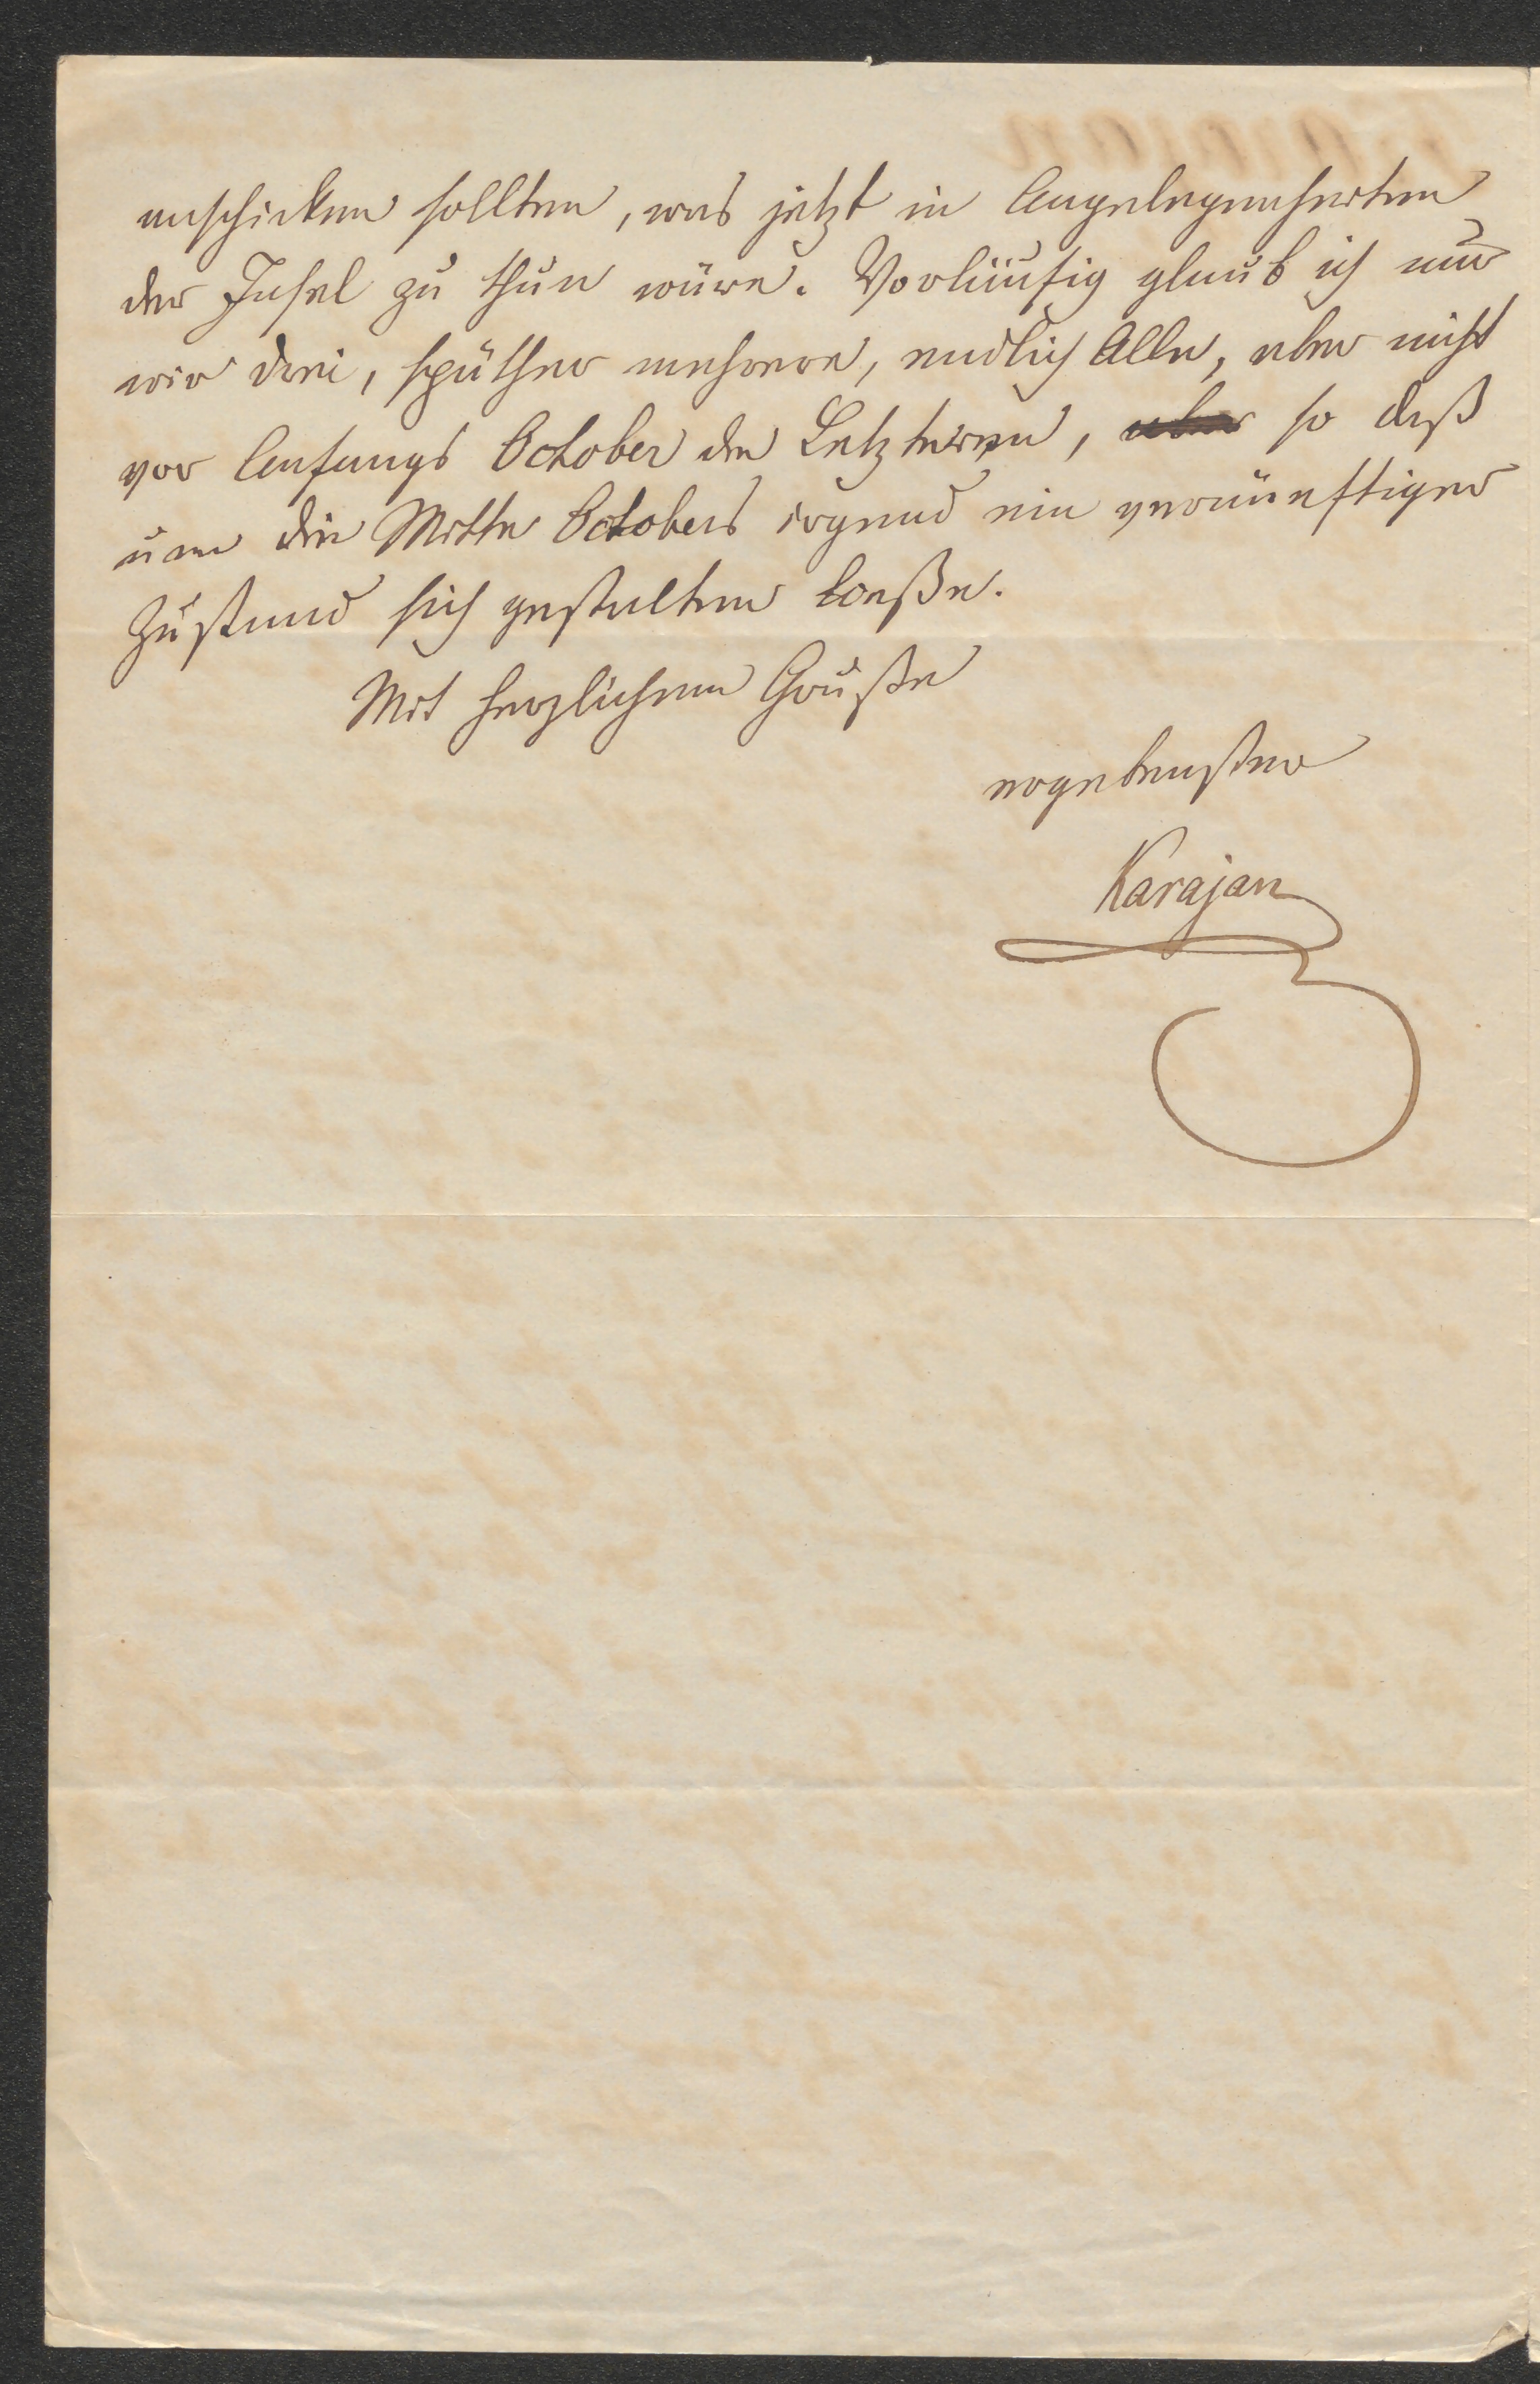 anschicken sollten, was jetzt in Angelegenheiten
der Insel zu thun wäre. Vorläufig glaub ich nur
wir drei, späther mehrere, endlich Alle, aber nicht
vor Anfangs October die Letzteren, aber so daß
um die Mitte Octobers irgend ein vernünftiger
Zustand sich gestalten laße.
Mit herzlichem Gruße
ergebenster
Karajan